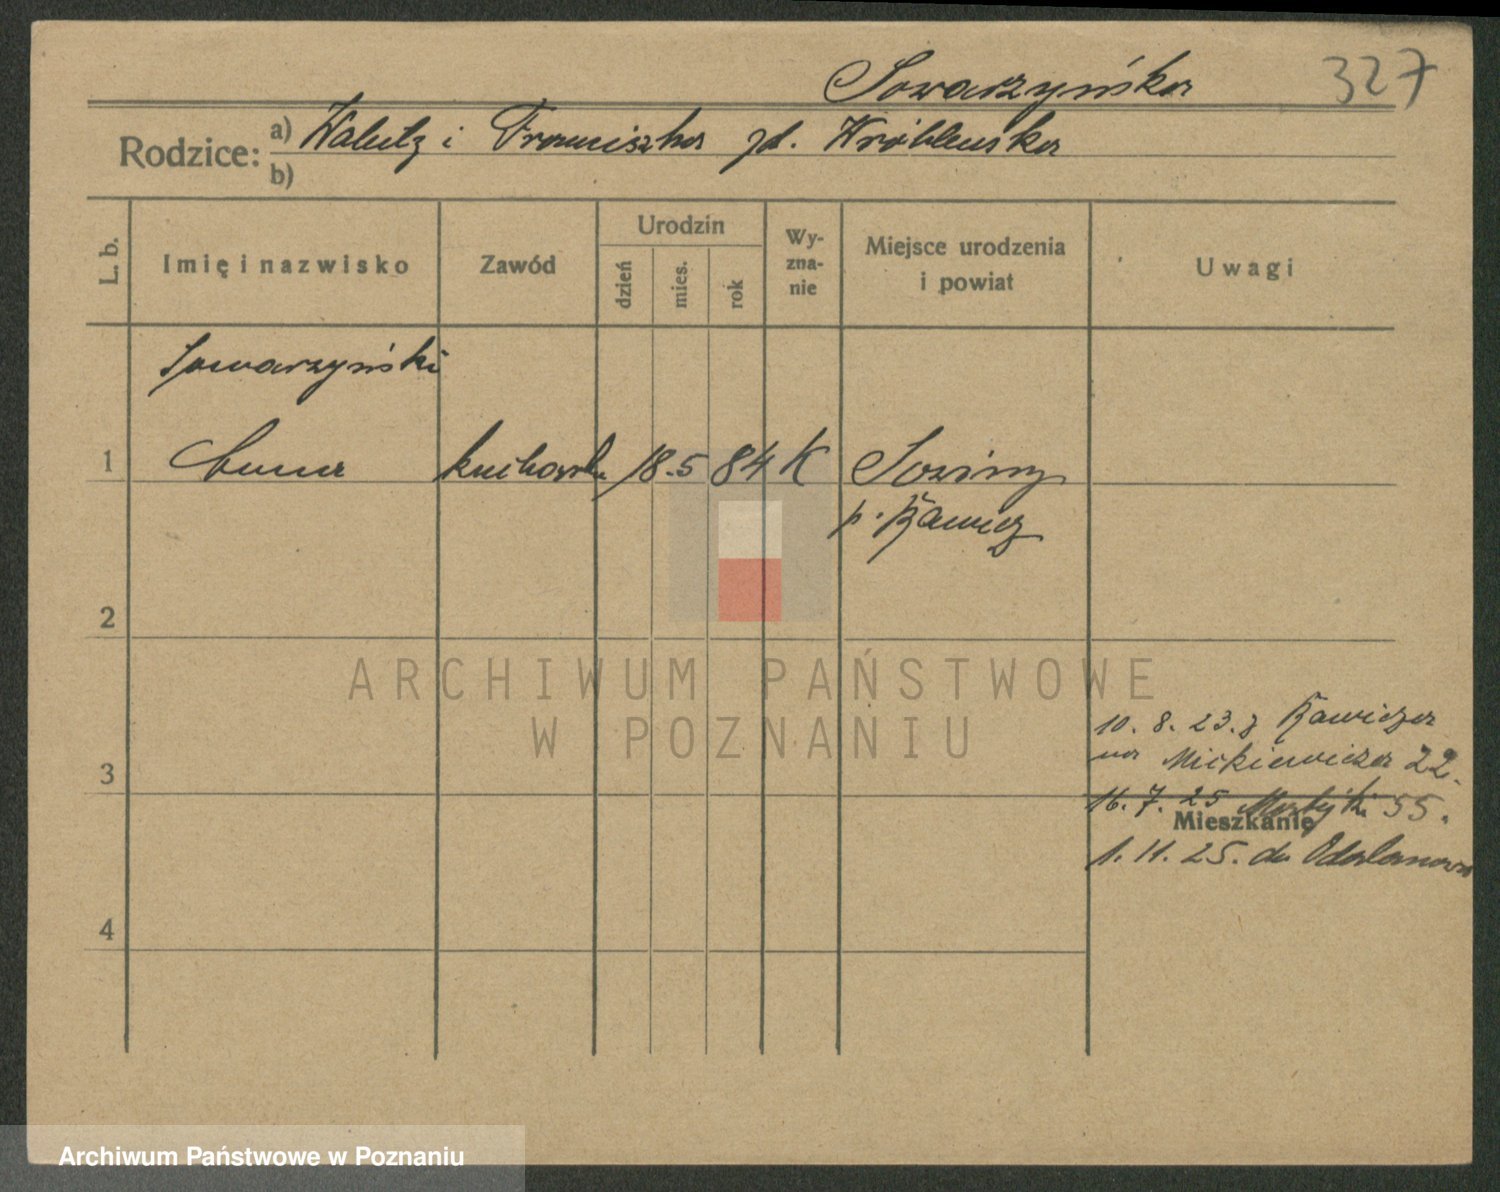 Sowarzyńska 327
Rodzice: a) Walenty i Franciszka zd. Wróblewska
b)
L. b. Imię i nazwisko Zawód Urodzin dzień mies. rok Wy-zna-nie Miejsce urodzenia i powiat Uwagi
Sowarzyński
1 Anna kucharka 18.5 84 K Sowiny
p. Rawicz
2
ARCHIWUM PAŃSTWOWE
W POZNANIU
10. 8. 23. z Rawicza
na Mickiewicza 22.
3
16. 7. 25 55.
Mieszkanie
1. 11. 25. do Odolanowa
4
Archiwum Państwowe w Poznaniu